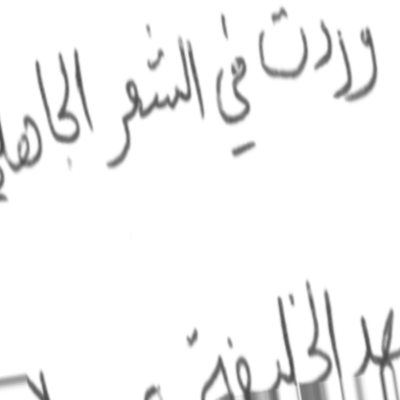 وردت في الشعر الجاهلي
عهد الخليفة